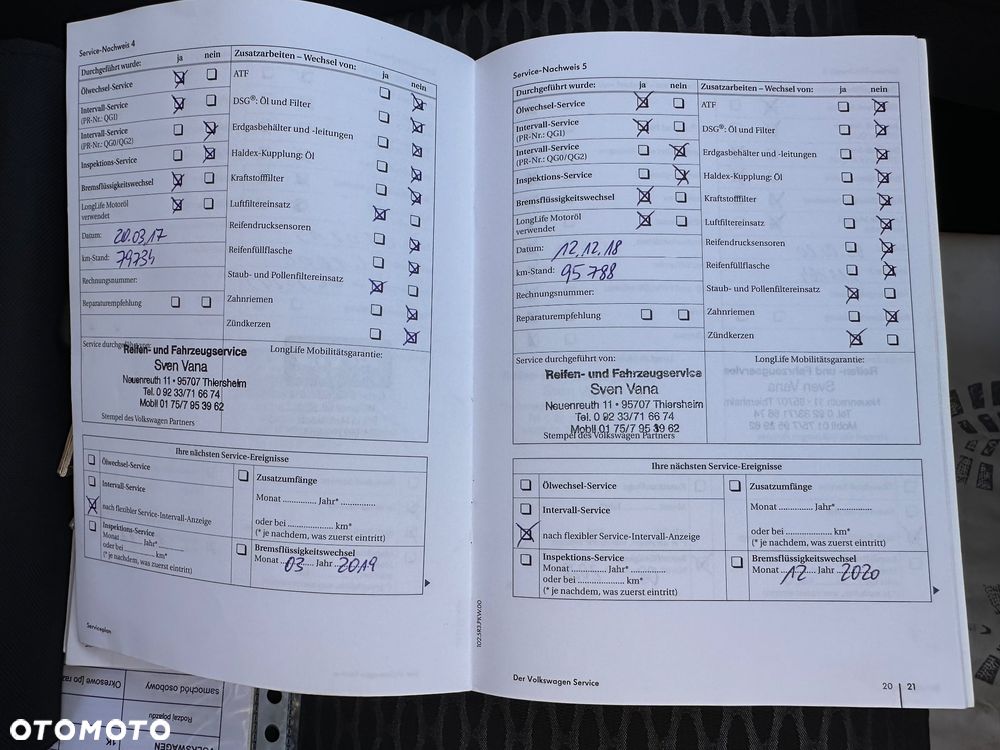 Service-Nachweis 4
Durchgeführt wurde: ja nein
Ölwechsel-Service
Intervall-Service
(PR-Nr.: QG1)
Intervall-Service
(PR-Nr.: QG0/QG2)
Inspektions-Service
Bremsflüssigkeitswechsel
LongLife Motoröl
verwendet
Datum: 20.03.17
km-Stand: 79734
Rechnungsnummer:
Reparaturempfehlung
Zusatzarbeiten – Wechsel von: ja nein
ATF
DSG®: Öl und Filter
Erdgasbehälter und -leitungen
Haldex-Kupplung: Öl
Kraftstofffilter
Luftfiltereinsatz
Reifendrucksensoren
Reifenfüllflasche
Staub- und Pollenfiltereinsatz
Zahnriemen
Zündkerzen
Service durchgeführt von:
Reifen- und Fahrzeugservice
Sven Vana
Neuenreuth 11 • 95707 Thiersheim
Tel. 0 92 33/71 66 74
Mobil 01 75/7 95 39 62
Stempel des Volkswagen Partners
LongLife Mobilitätsgarantie:
Ihre nächsten Service-Ereignisse
Ölwechsel-Service
Intervall-Service
nach flexibler Service-Intervall-Anzeige
Inspektions-Service
Monat ............ Jahr* ............
oder bei ............ km*
(* je nachdem, was zuerst eintritt)
Zusatzumfänge
Monat ............ Jahr* ............
oder bei ............ km*
(* je nachdem, was zuerst eintritt)
Bremsflüssigkeitswechsel
Monat 03 Jahr 2019
Serviceplan
Service-Nachweis 5
Durchgeführt wurde: ja nein
Ölwechsel-Service
Intervall-Service
(PR-Nr.: QG1)
Intervall-Service
(PR-Nr.: QG0/QG2)
Inspektions-Service
Bremsflüssigkeitswechsel
LongLife Motoröl
verwendet
Datum: 12.12.18
km-Stand: 95788
Rechnungsnummer:
Reparaturempfehlung
Zusatzarbeiten – Wechsel von: ja nein
ATF
DSG®: Öl und Filter
Erdgasbehälter und -leitungen
Haldex-Kupplung: Öl
Kraftstofffilter
Luftfiltereinsatz
Reifendrucksensoren
Reifenfüllflasche
Staub- und Pollenfiltereinsatz
Zahnriemen
Zündkerzen
Service durchgeführt von:
Reifen- und Fahrzeugservice
Sven Vana
Neuenreuth 11 • 95707 Thiersheim
Tel. 0 92 33/71 66 74
Mobil 01 75/7 95 39 62
Stempel des Volkswagen Partners
LongLife Mobilitätsgarantie:
Ihre nächsten Service-Ereignisse
Ölwechsel-Service
Intervall-Service
nach flexibler Service-Intervall-Anzeige
Inspektions-Service
Monat ............ Jahr* ............
oder bei ............ km*
(* je nachdem, was zuerst eintritt)
Zusatzumfänge
Monat ............ Jahr* ............
oder bei ............ km*
(* je nachdem, was zuerst eintritt)
Bremsflüssigkeitswechsel
Monat 12 Jahr 2020
102.5R3.PKW.00
Der Volkswagen Service
20 21
samochód osobowy
Okresowe [po
Rodzaj pojazdu
VOLKSWAGEN
1K
OTOMOTO